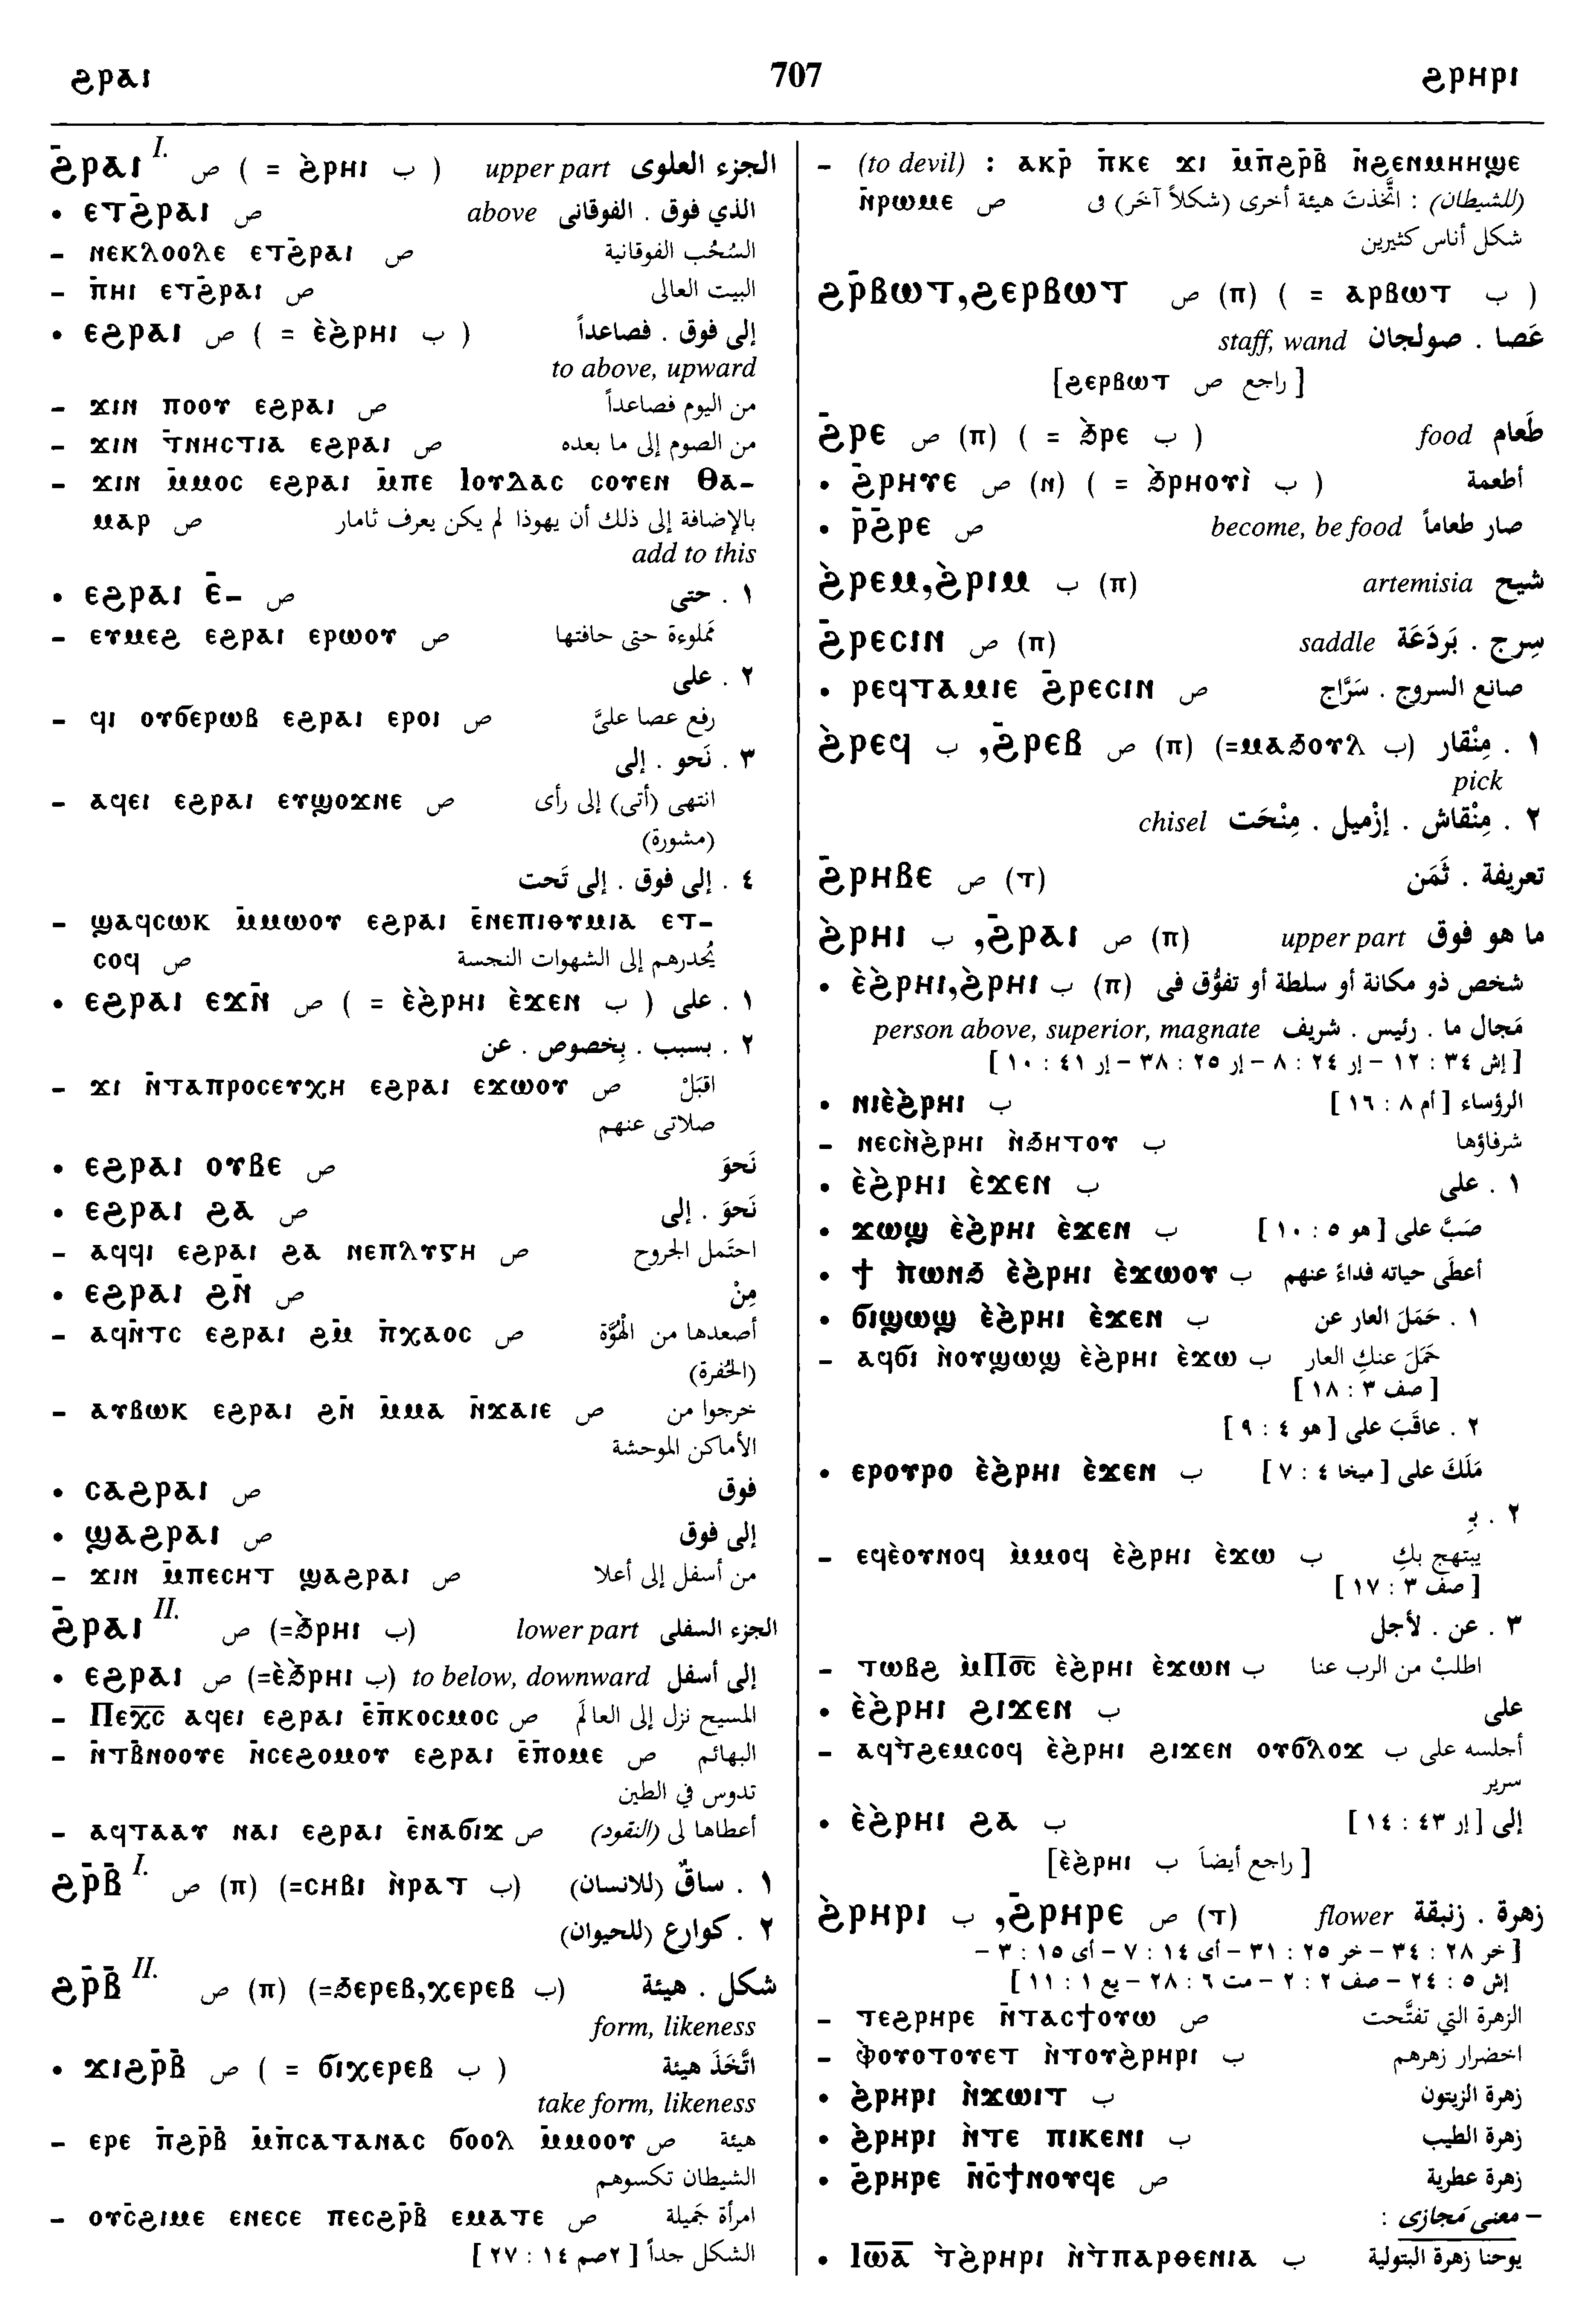 ϩⲣⲁⲓ 707 ϩⲣⲏⲣⲓ
ϩ̄ⲣⲁⲓ I. ص ( = ϩ̀ⲣⲏⲓ ب ) upper part الجزء العلوى
• ⲉⲧϩ̄ⲣⲁⲓ ص above الذي فوق . الفوقانى
– ⲛⲉⲕⲗⲟⲟⲗⲉ ⲉⲧϩ̄ⲣⲁⲓ ص السُحُب الفوقانية
– ⲡ̄ⲏⲓ ⲉⲧϩ̄ⲣⲁⲓ ص البيت العالى
• ⲉϩⲣⲁⲓ ص ( = ⲉ̀ϩ̀ⲣⲏⲓ ب ) إلى فوق . فصاعداً
to above, upward
– ϫⲓⲛ ⲡⲟⲟⲩ ⲉϩⲣⲁⲓ ص من اليوم فصاعداً
– ϫⲓⲛ ⲧ̄ⲛⲏⲥⲧⲓⲁ ⲉϩⲣⲁⲓ ص من الصوم إلى ما بعده
– ϫⲓⲛ ⲙ̄ⲙⲟⲥ ⲉϩⲣⲁⲓ ⲙ̄ⲡⲉ Ⲓⲟⲩⲇⲁⲥ ⲥⲟⲩⲉⲛ Ⲑⲁ–
ⲙⲁⲣ ص بالإضافة إلى ذلك أن يهوذا لم يكن يعرف ثامار
add to this
• ⲉϩⲣⲁⲓ ⲉ̄– ص ١ . حتى
– ⲉⲩⲙⲉϩ ⲉϩⲣⲁⲓ ⲉⲣⲱⲟⲩ ص مَملوءة حتى حافتها
٢ . على
– ϥⲓ ⲟⲩϭⲉⲣⲱⲃ ⲉϩⲣⲁⲓ ⲉⲣⲟⲓ ص رفع عصا علىَّ
٣ . نَحو . إلى
– ⲁϥⲉⲓ ⲉϩⲣⲁⲓ ⲉⲩϣⲟϫⲛⲉ ص انتهى (أتى) إلى رأى
(مشورة)
٤ . إلى فوق . إلى تَحت
– ϣⲁϥⲥⲱⲕ ⲙ̄ⲙⲱⲟⲩ ⲉϩⲣⲁⲓ ⲉ̄ⲛⲉⲡⲓⲑⲩⲙⲓⲁ ⲉⲧ–
ⲥⲟϥ ص يُحدرهم إلى الشهوات النجسة
• ⲉϩⲣⲁⲓ ⲉϫⲛ̄ ص ( = ⲉ̀ϩ̀ⲣⲏⲓ ⲉ̀ϫⲉⲛ ب ) ١ . على
٢ . بسبب . بِخصوص . عن
– ϫⲓ ⲛ̄ⲧⲁⲡⲣⲟⲥⲉⲩⲭⲏ ⲉϩⲣⲁⲓ ⲉϫⲱⲟⲩ ص اقبَلْ
صلاتى عنهم
• ⲉϩⲣⲁⲓ ⲟⲩⲃⲉ ص نَحوَ
• ⲉϩⲣⲁⲓ ϩⲁ ص نَحوَ . إلى
– ⲁϥϥⲓ ⲉϩⲣⲁⲓ ϩⲁ ⲛⲉⲡⲗⲩⲅⲏ ص احتَمل الجروح
• ⲉϩⲣⲁⲓ ϩⲛ̄ ص مِنْ
– ⲁϥⲛ̄ⲧⲥ ⲉϩⲣⲁⲓ ϩⲙ̄ ⲡ̄ⲭⲁⲟⲥ ص أصعدها من الْهُوَّة
(الحُفرة)
– ⲁⲩⲃⲱⲕ ⲉϩⲣⲁⲓ ϩⲛ̄ ⲙ̄ⲙⲁ ⲛ̄ϫⲁⲓⲉ ص خرجوا من
الأماكن الموحشة
• ⲥⲁϩⲣⲁⲓ ص فوق
• ϣⲁϩⲣⲁⲓ ص إلى فوق
– ϫⲓⲛ ⲙ̄ⲡⲉⲥⲏⲧ ϣⲁϩⲣⲁⲓ ص من أسفل إلى أعلا
ϩ̄ⲣⲁⲓ II. ص (=ϧ̀ⲣⲏⲓ ب) lower part الجزء السفلى
• ⲉϩⲣⲁⲓ ص (=ⲉ̀ϧ̀ⲣⲏⲓ ب) to below, downward إلى أسفل
– Ⲡⲉⲭ̅ⲥ̅ ⲁϥⲉⲓ ⲉϩⲣⲁⲓ ⲉ̄ⲡ̄ⲕⲟⲥⲙⲟⲥ ص المسيح نزل إلى العالَم
– ⲛ̄ⲧⲃ̄ⲛⲟⲟⲩⲉ ⲛ̄ⲥⲉϩⲟⲙⲟⲩ ⲉϩⲣⲁⲓ ⲉ̄ⲡ̄ⲟⲙⲉ ص البهائم
تدوس في الطين
– ⲁϥⲧⲁⲁⲩ ⲛⲁⲓ ⲉϩⲣⲁⲓ ⲉ̄ⲛⲁϭⲓϫ ص أعطاها لى (النقود)
ϩⲣ̄ⲃ̄ I. ص (ⲡ) (=ⲥⲏⲃⲓ ⲛ̀ⲣⲁⲧ ب) ١ . ساقٌ (للانسان)
٢ . كوارع (للحيوان)
ϩⲣ̄ⲃ̄ II. ص (ⲡ) (=ϧⲉⲣⲉⲃ,ⲭⲉⲣⲉⲃ ب) شكل . هيئة
form, likeness
• ϫⲓϩⲣ̄ⲃ̄ ص ( = ϭⲓⲭⲉⲣⲉⲃ ب ) اتَّخَذَ هيئة
take form, likeness
– ⲉⲣⲉ ⲡ̄ϩⲣ̄ⲃ̄ ⲙ̄ⲡ̄ⲥⲁⲧⲁⲛⲁⲥ ϭⲟⲟⲗ ⲙ̄ⲙⲟⲟⲩ ص هيئة
الشيطان تكسوهم
– ⲟⲩⲥ̄ϩⲓⲙⲉ ⲉⲛⲉⲥⲉ ⲡⲉⲥϩⲣ̄ⲃ̄ ⲉⲙⲁⲧⲉ ص امرأة جَميلة
الشكل جداً [ ٢صم ١٤ : ٢٧ ]
– (to devil) : ⲁⲕⲣ̄ ⲡ̄ⲕⲉ ϫⲓ ⲙ̄ⲡ̄ϩⲣ̄ⲃ̄ ⲛ̄ϩⲉⲛⲙⲏⲏϣⲉ
ⲛ̄ⲣⲱⲙⲉ ص (للشيطان) : اتَّخذتَ هيئة أخرى (شكلاً آخَر) فى
شكل أناس كثيرين
ϩⲣ̄ⲃⲱⲧ,ϩⲉⲣⲃⲱⲧ ص (ⲡ) ( = ⲁⲣⲃⲱⲧ ب )
staff, wand عَصا . صولجان
[ϩⲉⲣⲃⲱⲧ راجع ص ]
ϩ̄ⲣⲉ ص (ⲡ) ( = ϧ̀ⲣⲉ ب ) food طَعام
• ϩ̄ⲣⲏⲩⲉ ص (ⲛ) ( = ϧ̀ⲣⲏⲟⲩⲓ̀ ب ) أطعمة
• ⲣ̄ϩ̄ⲣⲉ ص become, be food صار طعاماً
ϩ̀ⲣⲉⲙ,ϩ̀ⲣⲓⲙ ب (ⲡ) artemisia شيح
ϩ̄ⲣⲉⲥⲓⲛ ص (ⲡ) saddle سِرج . بَردَعَة
• ⲣⲉϥⲧⲁⲙⲓⲉ ϩ̄ⲣⲉⲥⲓⲛ ص صانع السروج . سَرَّاج
ϩ̀ⲣⲉϥ ب ,ϩ̄ⲣⲉⲃ ص (ⲡ) (=ⲙⲁϧⲟⲩⲗ ب) ١ . مِنْقار
pick
٢ . مِنْقاش . إزْميل . مِنْحَت chisel
ϩ̄ⲣⲏⲃⲉ ص (ⲧ) تعريفة . ثَمَن
ϩ̀ⲣⲏⲓ ب ,ϩ̄ⲣⲁⲓ ص (ⲡ) upper part ما هو فوق
• ⲉ̀ϩ̀ⲣⲏⲓ,ϩ̀ⲣⲏⲓ ب (ⲡ) شخص ذو مكانة أو سلطة أو تفوُّق فى
person above, superior, magnate مَجال ما . رئيس . شريف
[ إش ٣٤ : ١٢ – إر ٢٤ : ٨ – إر ٢٥ : ٣٨ – إر ٤١ : ١٠ ]
• ⲛⲓⲉ̀ϩ̀ⲣⲏⲓ ب الرؤساء [ أم ٨ : ١٦ ]
– ⲛⲉⲥⲛ̀ϩ̀ⲣⲏⲓ ⲛ̀ϧⲏⲧⲟⲩ ب شرفاؤها
• ⲉ̀ϩ̀ⲣⲏⲓ ⲉ̀ϫⲉⲛ ب ١ . على
• ϫⲱϣ ⲉ̀ϩ̀ⲣⲏⲓ ⲉ̀ϫⲉⲛ ب صَبَّ على [ هو ٥ : ١٠ ]
• ϯ ⲡ̀ⲱⲛϧ ⲉ̀ϩ̀ⲣⲏⲓ ⲉ̀ϫⲱⲟⲩ ب أعطَى حياته فداءً عنهم
• ϭⲓϣⲱϣ ⲉ̀ϩ̀ⲣⲏⲓ ⲉ̀ϫⲉⲛ ب ١ . حَمَلَ العار عن
– ⲁϥϭⲓ ⲛ̀ⲟⲩϣⲱϣ ⲉ̀ϩ̀ⲣⲏⲓ ⲉ̀ϫⲱ ب حَمَلَ عنكِ العار
[ صف ٣ : ١٨ ]
٢ . عاقَبَ على [ هو ٤ : ٩ ]
• ⲉⲣⲟⲩⲣⲟ ⲉ̀ϩ̀ⲣⲏⲓ ⲉ̀ϫⲉⲛ ب مَلَكَ على [ ميخا ٤ : ٧ ]
٢ . بِـ
– ⲉϥⲉ̀ⲟⲩⲛⲟϥ ⲙ̀ⲙⲟϥ ⲉ̀ϩ̀ⲣⲏⲓ ⲉ̀ϫⲱ ب يبتهج بكِ
[ صف ٣ : ١٧ ]
٣ . عن . لأجل
– ⲧⲱⲃϩ ⲙ̀Ⲡⲟ̅ⲥ̅ ⲉ̀ϩ̀ⲣⲏⲓ ⲉ̀ϫⲱⲛ ب اطلبْ من الرب عنا
• ⲉ̀ϩ̀ⲣⲏⲓ ϩⲓϫⲉⲛ ب على
– ⲁϥⲧ̀ϩⲉⲙⲥⲟϥ ⲉ̀ϩ̀ⲣⲏⲓ ϩⲓϫⲉⲛ ⲟⲩϭⲗⲟϫ ب أجلسه على
سرير
• ⲉ̀ϩ̀ⲣⲏⲓ ϩⲁ ب إلى [ إر ٤٣ : ١٤ ]
[ⲉ̀ϩ̀ⲣⲏⲓ راجع أيضاً ب ]
ϩ̀ⲣⲏⲣⲓ ب ,ϩ̄ⲣⲏⲣⲉ ص (ⲧ) flower زهرة . زنبقة
[ خر ٢٨ : ٣٤ – خر ٢٥ : ٣١ – أى ١٤ : ٧ – أى ١٥ : ٣ –
إش ٥ : ٢٤ – صف ٢ : ٢ – مت ٦ : ٢٨ – يع ١ : ١١ ]
– ⲧⲉϩⲣⲏⲣⲉ ⲛ̄ⲧⲁⲥϯⲟⲩⲱ ص الزهرة التي تفتَّحت
– ⲫ̀ⲟⲩⲟⲧⲟⲩⲉⲧ ⲛ̀ⲧⲟⲩϩ̀ⲣⲏⲣⲓ ب اخضرار زهرهم
• ϩ̀ⲣⲏⲣⲓ ⲛ̀ϫⲱⲓⲧ ب زهرة الزيتون
• ϩ̀ⲣⲏⲣⲓ ⲛ̀ⲧⲉ ⲡⲓⲕⲉⲛⲓ ب زهرة الطيب
• ϩ̄ⲣⲏⲣⲉ ⲛ̄ⲥ̄ϯⲛⲟⲩϥⲉ ص زهرة عطرية
– معنى مَجازى :
• Ⲓⲱ̅ⲁ̅ ⲧ̀ϩ̀ⲣⲏⲣⲓ ⲛ̀ⲧ̀ⲡⲁⲣⲑⲉⲛⲓⲁ ب يوحنا زهرة البتولية